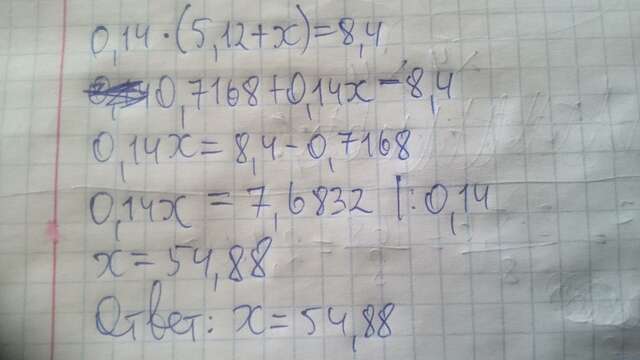 0,14·(5,12+x)=8,4
0,7168+0,14x=8,4
0,14x=8,4-0,7168
0,14x=7,6832 |:0,14
x=54,88
Ответ: x=54,88